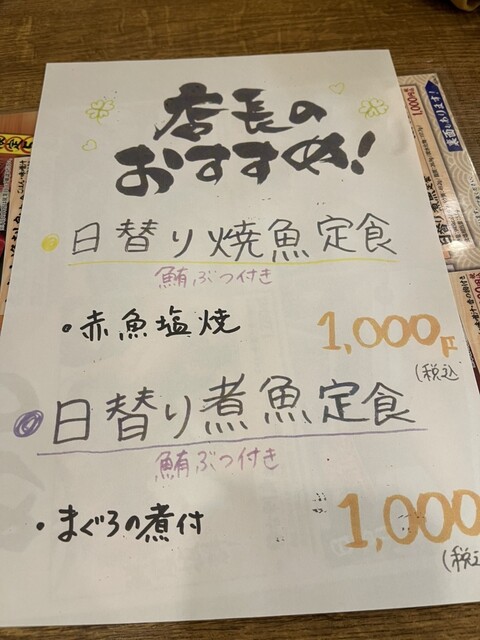 店長の
おすすめ!
日替り焼魚定食
鮪ぶつ付き
・赤魚塩焼
1,000円
(税込
日替り煮魚定食
鮪ぶつ付き
・まぐろの煮付
1,000
(税込
裏面もあります!
1,000円